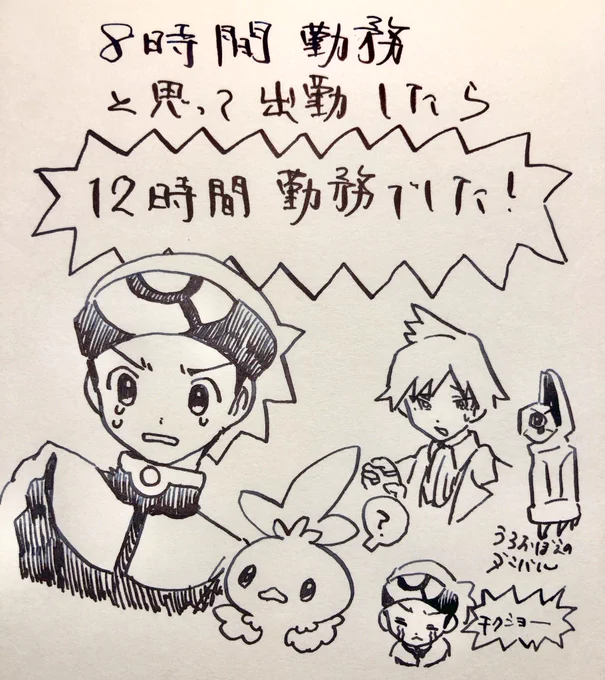 8時間勤務
と思って出勤したら
12時間勤務でした!
?
うろおぼえの
ダンバル
チクショー